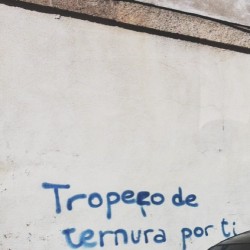 Tropeço de
ternura por ti